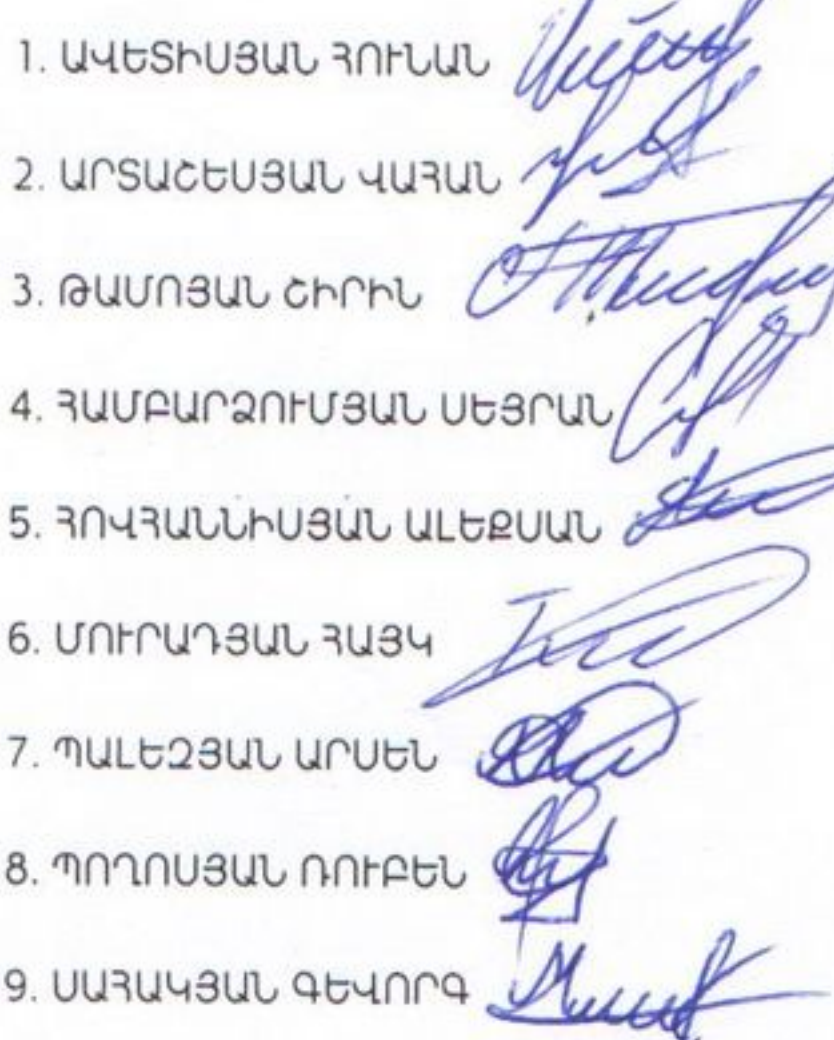 1. ԱՎԵՏԻՍՅԱՆ ՀՈՒՆԱՆ
2. ԱՐՏԱՇԵՍՅԱՆ ՎԱՀԱՆ
3. ԹԱՄՈՅԱՆ ՇԻՐԻՆ
4. ՀԱՄԲԱՐՁՈՒՄՅԱՆ ՍԵՅՐԱՆ
5. ՀՈՎՀԱՆՆԻՍՅԱՆ ԱԼԵՔՍԱՆ
6. ՄՈՒՐԱԴՅԱՆ ՀԱՅԿ
7. ՊԱԼԵԶՅԱՆ ԱՐՍԵՆ
8. ՊՈՂՈՍՅԱՆ ՌՈՒԲԵՆ
9. ՍԱՀԱԿՅԱՆ ԳԵՎՈՐԳ